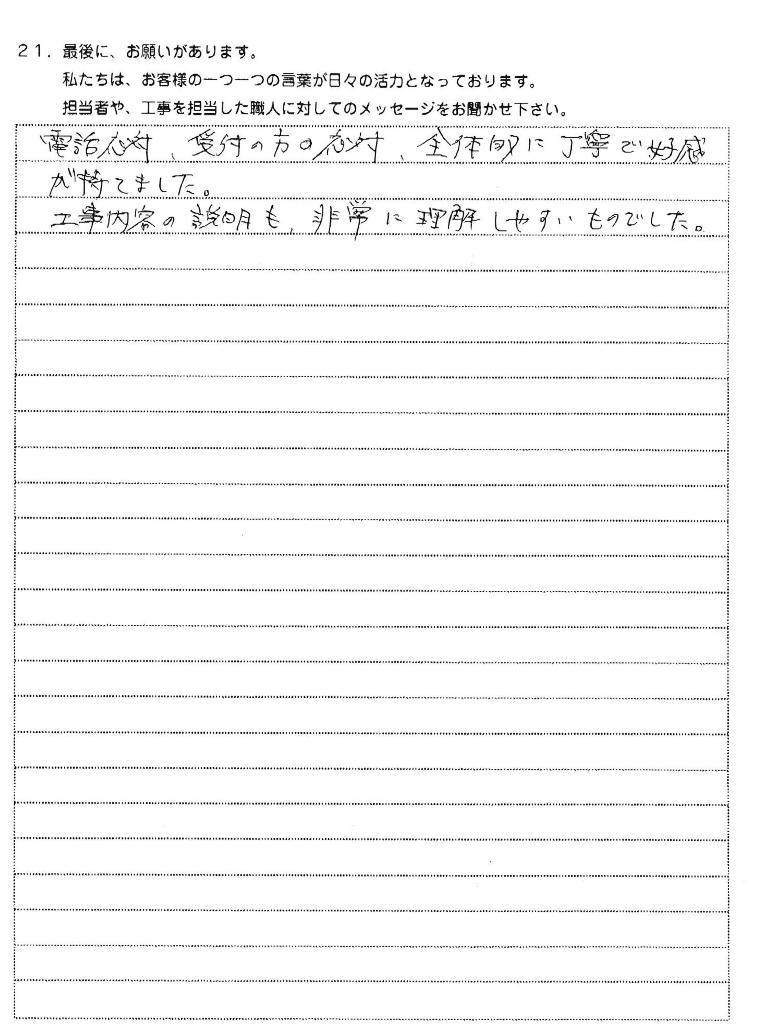 21. 最後に、お願いがあります。
私たちは、お客様の一つ一つの言葉が日々の活力となっております。
担当者や、工事を担当した職人に対してのメッセージをお聞かせ下さい。
電話応対、受付の方の応対、全体的に丁寧で好感
が持てました。
工事内容の説明も、非常に理解しやすいものでした。